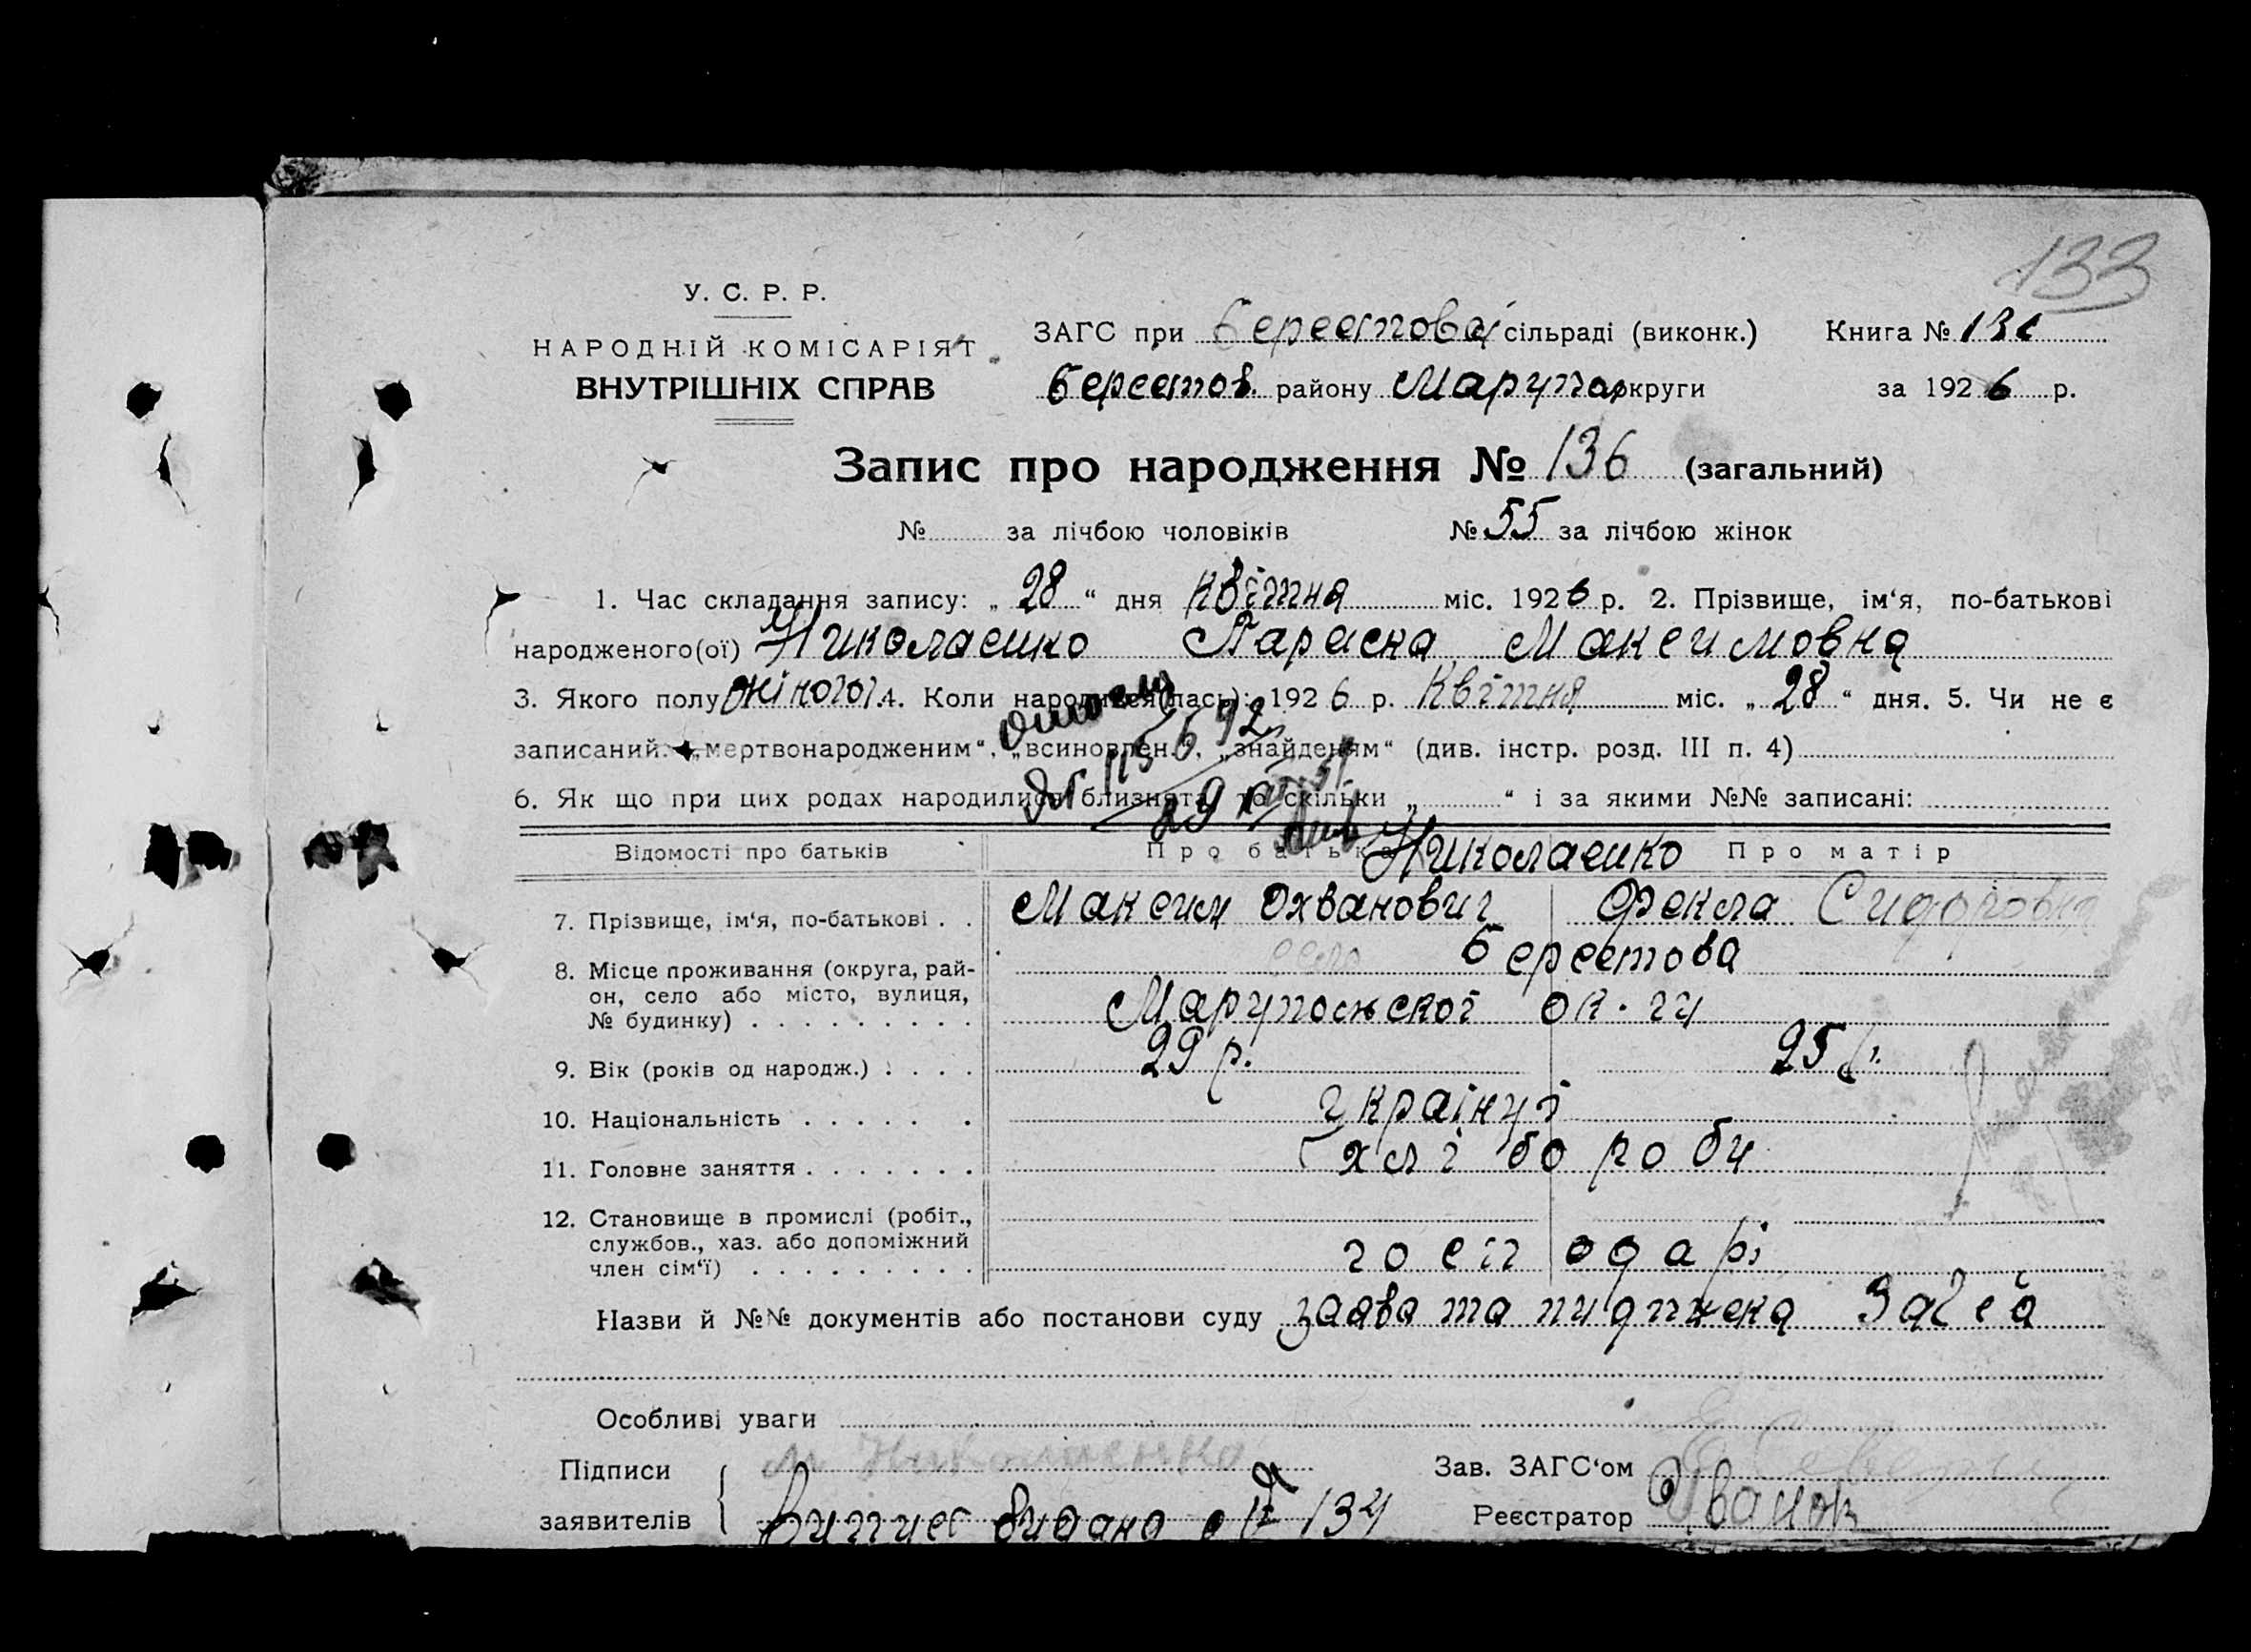 133
У. С. Р. Р.
НАРОДНІЙ КОМІСАРІЯТ
ВНУТРІШНІХ СПРАВ
ЗАГС при Берестовой сільраді (виконк.) Книга №
Берестов. району Маріупол округи за 1926 р.
Запис про народження № 136 (загальний)
№ за лічбою чоловіків № 55 за лічбою жінок
1. Час складання запису: „28“ дня квітня міс. 1926 р. 2. Прізвище, ім‘я, по-батькові
народженого(ої) Николаенко Параска Максимовна
3. Якого полу жіного 4. Коли народився(лась): 1926 р. Квітня міс. „28“ дня. 5. Чи не є
записаний: „мертвонародженим“, „всиновлен.“, „знайденим“ (див. інстр. розд. III п. 4)
6. Як що при цих родах народилися близнята, то скільки „ “ і за якими №№ записані:
Відомості про батьків Про батька Николаенко Про матір
7. Прізвище, ім‘я, по-батькові Максим Охванович Фекла Сидоровна
8. Місце проживання (округа, рай- село Берестова
он, село або місто, вулиця,
№ будинку) Маріупольскої ок-ги
9. Вік (років од народж.) 29 р. 25 р.
10. Національність українці
11. Головне заняття хлібороби
12. Становище в промислі (робіт.,
службов., хаз. або допоміжний
член сім‘ї) господарі
Назви й №№ документів або постанови суду заява та пидписка
Особливі уваги
Підписи М Николаенко Зав. ЗАГС‘ом
заявителів Випис видано 134 Реєстратор Іванов